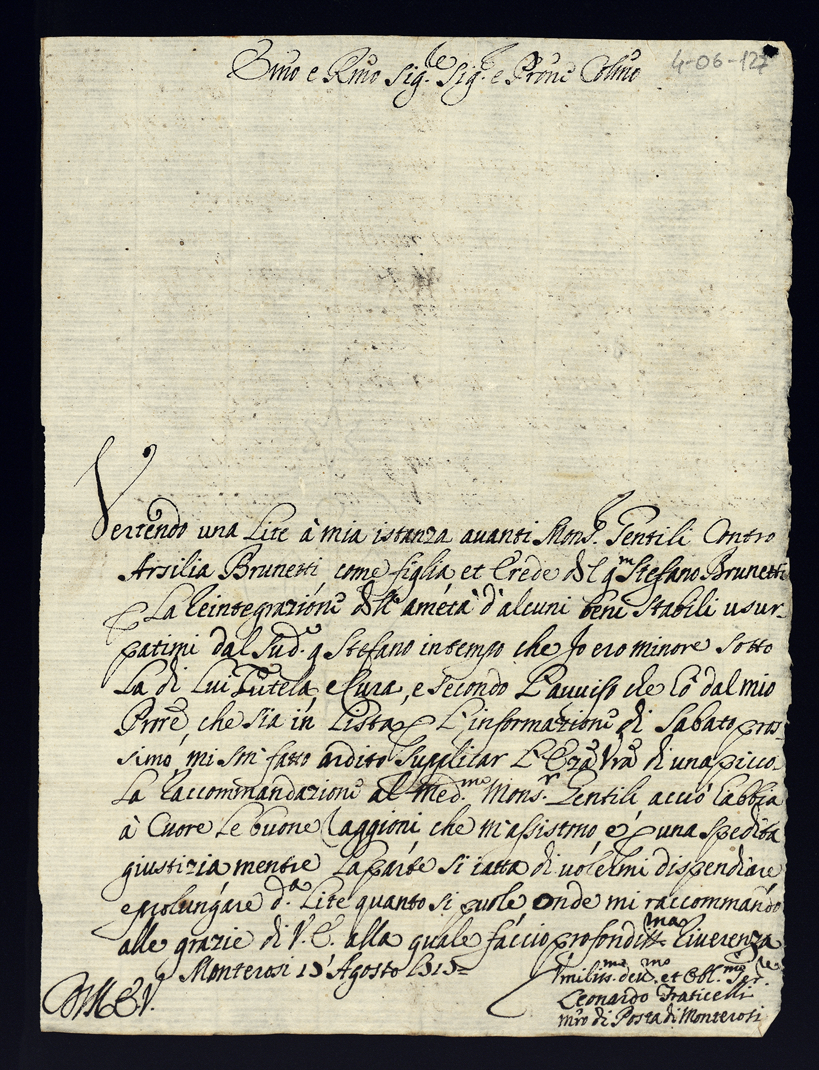 Emo e Rmo Sig.re Sig.re e Prone Colmo
4-06-127
Vertendo una Lite à mia istanza avanti Mons.r Gentili Contro
Arsilia Brunetti, come figlia et Erede del qm Stefano Brunetti
p La Reintegrazione della metà d'alcuni beni stabili usur-
patimi dal Sud.o q Stefano in tempo che Io ero minore sotto
La di Lui Tutela, e Cura, e secondo L'avviso che hò dal mio
Prre, che sia in Lista p L'informazione di Sabato pros
simo, mi son fatto ardito supplicar L'Eza Vra di una picco
La Raccommandazione al Med.mo Mons.r Gentili acciò habbia
à Cuore Le buone Raggioni che m'assistono e p una spedita
giustizia mentre La parte si tratta di volermi dispendiare
e prolungare d.a Lite quanto si puole Onde mi raccommando
alle grazie di V. E. alla quale faccio profondiss.ma Riverenza
Monterosi 13 Agosto
milis.mo dev.mo et Obl.mo Ser.re
Leonardo Fraticelli
mro di Posta di Monterosi